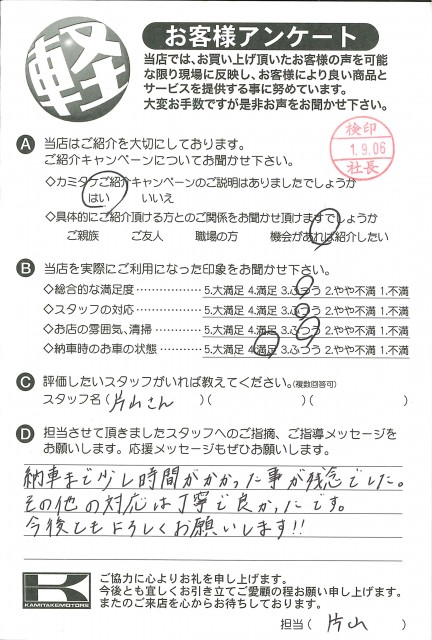 軽
お客様アンケート
当店では、お買い上げ頂いたお客様の声を可能
な限り現場に反映し、お客様により良い商品と
サービスを提供する事に努めています。
大変お手数ですが是非お声をお聞かせ下さい。
検印
1.9.06
社長
A 当店はご紹介を大切にしております。
ご紹介キャンペーンについてお聞かせ下さい。
◇カミタケご紹介キャンペーンのご説明はありましたでしょうか
はい いいえ
◇具体的にご紹介頂ける方とのご関係をお聞かせ頂けますでしょうか
ご親族 ご友人 職場の方 機会があれば紹介したい
B 当店を実際にご利用になった印象をお聞かせ下さい。
◇総合的な満足度 5.大満足 4.満足 3.ふつう 2.やや不満 1.不満
◇スタッフの対応 5.大満足 4.満足 3.ふつう 2.やや不満 1.不満
◇お店の雰囲気、清掃 5.大満足 4.満足 3.ふつう 2.やや不満 1.不満
◇納車時のお車の状態 5.大満足 4.満足 3.ふつう 2.やや不満 1.不満
C 評価したいスタッフがいれば教えてください。(複数回答可)
スタッフ名(片山さん )( )( )
D 担当させて頂きましたスタッフへのご指摘、ご指導メッセージを
お願いします。応援メッセージもぜひお願いします。
納車まで少し時間がかかった事が残念でした。
その他の対応は丁寧で良かったです。
今後ともよろしくお願いします!!
K
KAMITAKEMOTORS
ご協力に心よりお礼を申し上げます。
今後とも宜しくお引き立てご愛顧の程お願い申し上げます。
またのご来店を心からお待ちしております。
担当( 片山 )